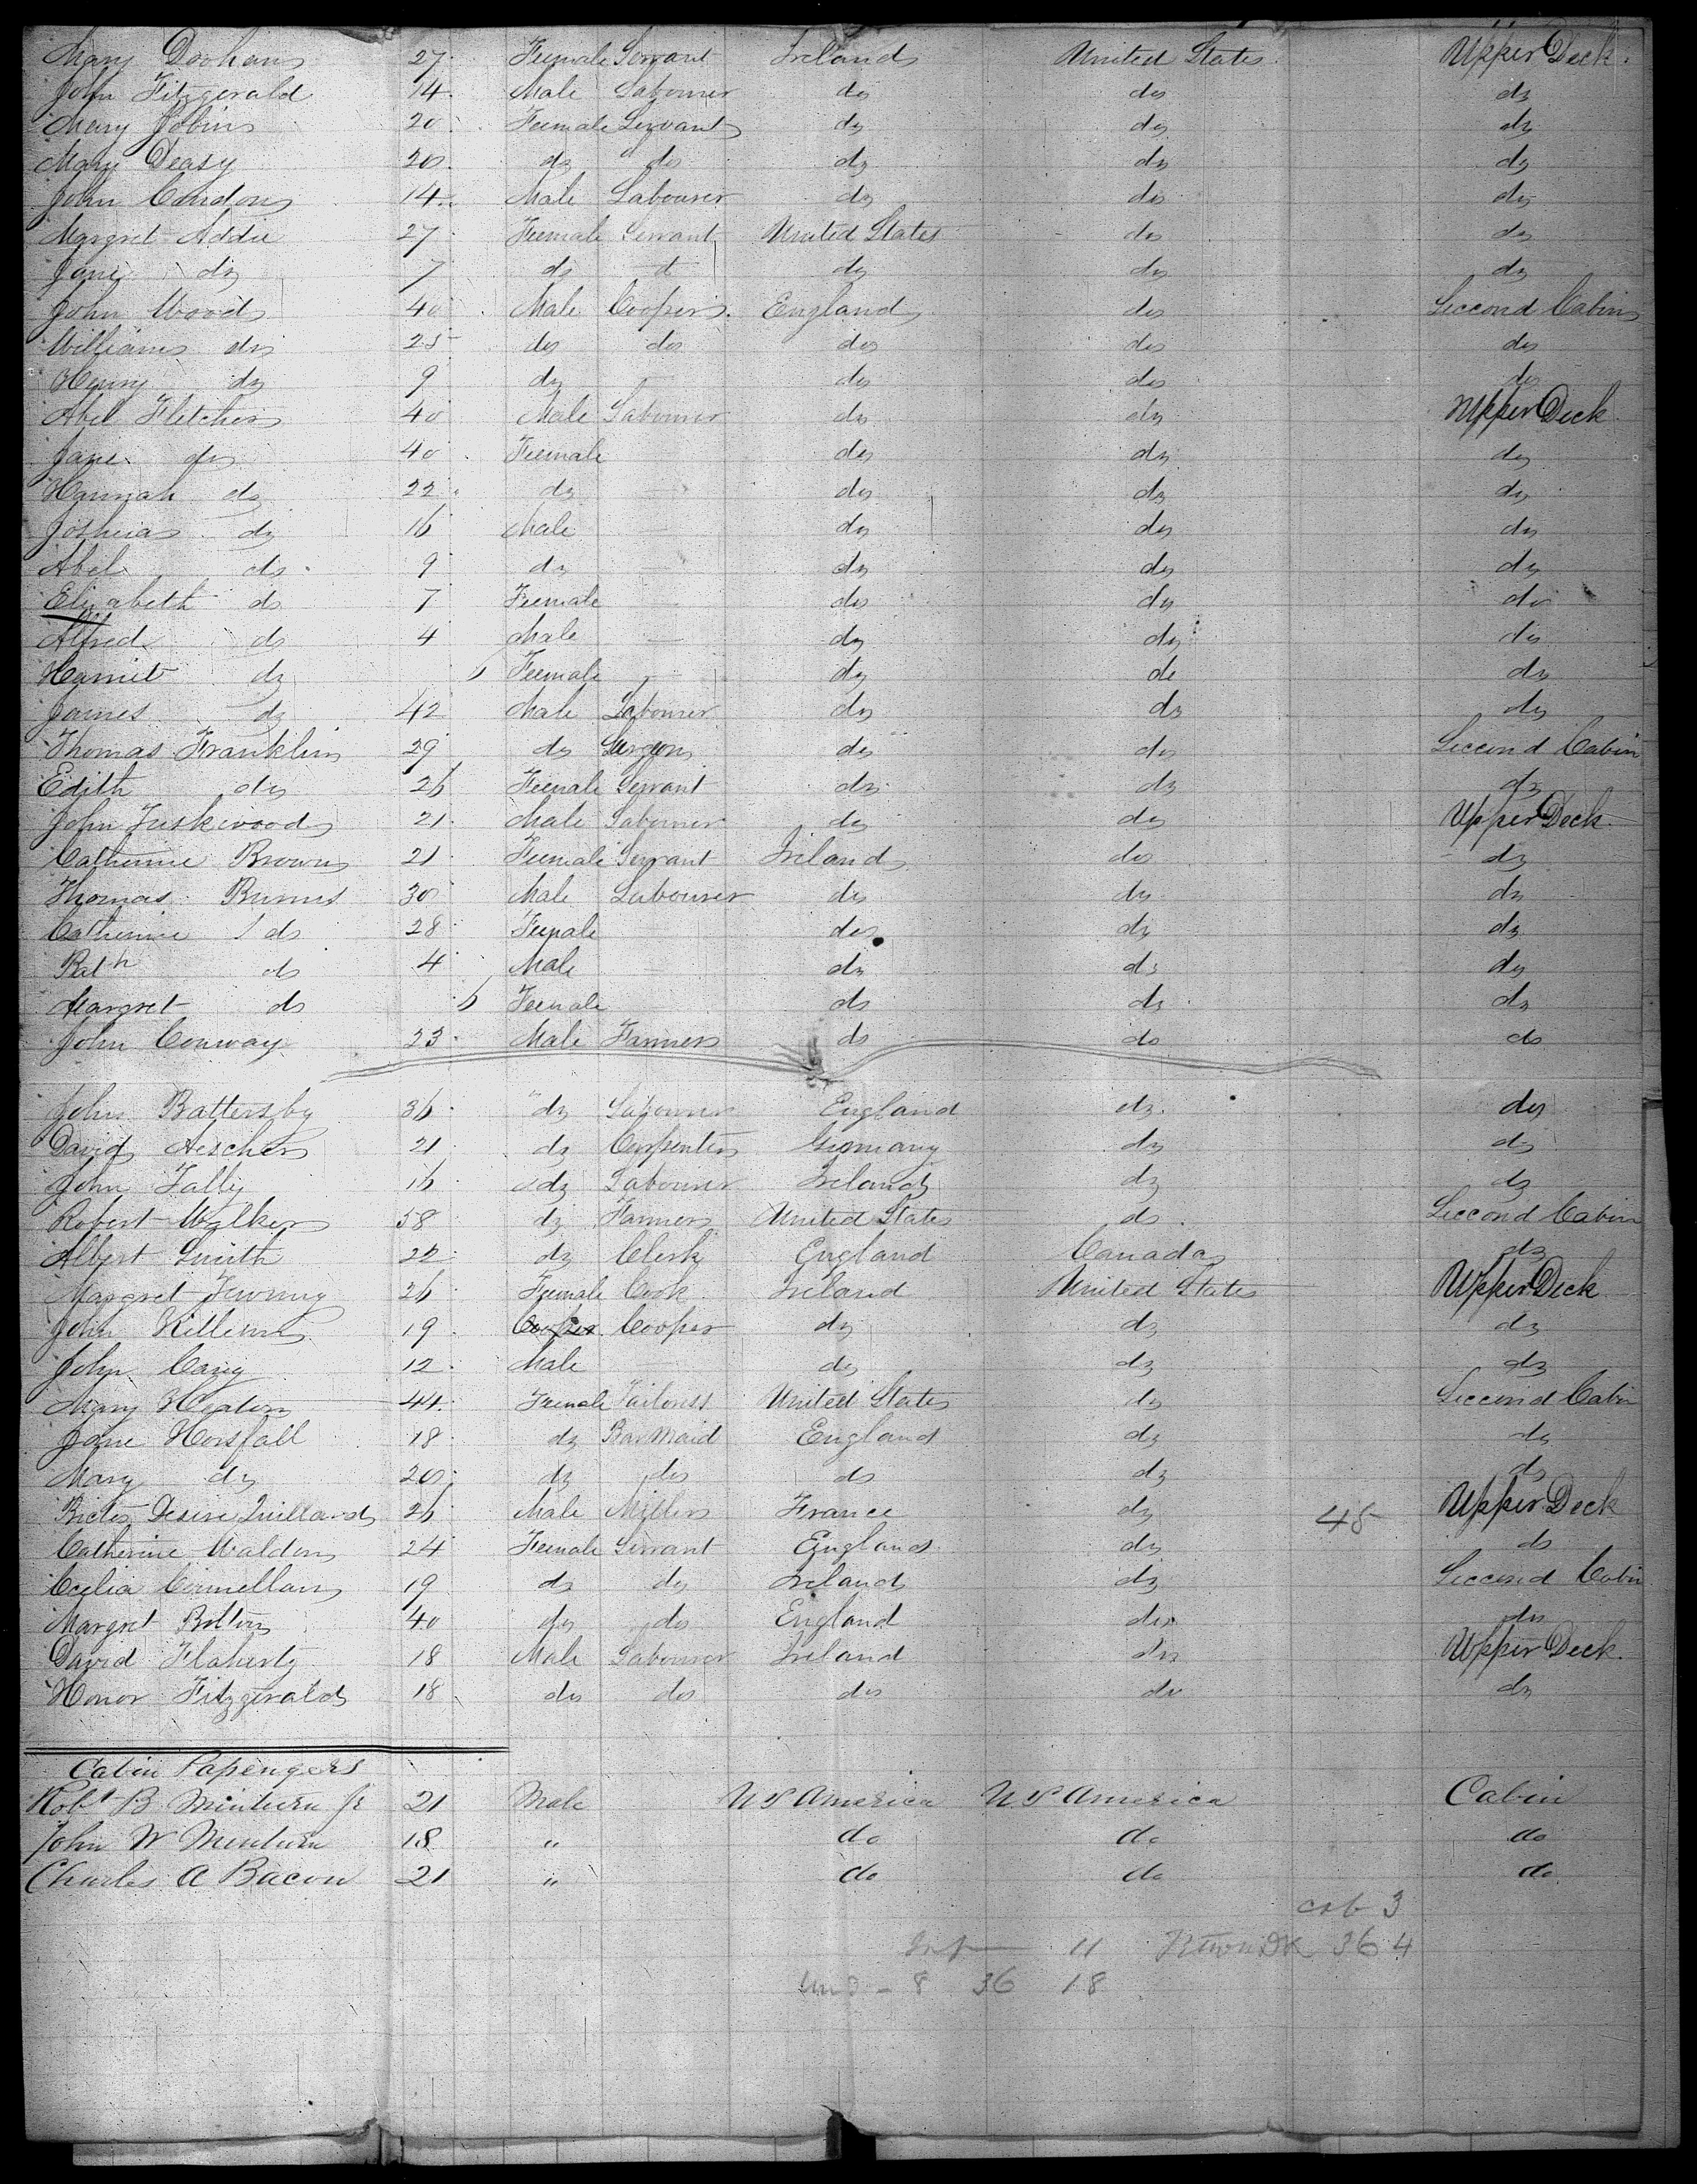 Mary Doohan 27 Female Servant Ireland United States Upper Deck.
John Fitzgerald 14 Male Labourer do do do
Mary Tobin 20 Female Servant do do do
Mary Deasy 20 do do do do do
John Condon 14 Male Labourer do do do
Margret Addie 27 Female Servant United States do do
Jane do 7 do do do do
John Wood 40 Male Cooper England do Seccond Cabin
William do 25 do do do do do
Henry do 9 do — do do do
Abel Fletcher 40 Male Labourer do do Upper Deck
Jane do 40 Female do do do
Hannah do 22 do — do do do
Joshua do 16 Male — do do do
Abel do 9 do — do do do
Elizabeth do 7 Female — do do do
Alfred do 4 Male — do do do
Harriet do 6 Female — do do do
James do 42 Male Labourer do do do
Thomas Franklin 29 do Surgeon do do Seccond Cabin
Edith do 26 Female Servant do do do
John Tuskwood 21 Male Labourer do do Upper Deck
Catherine Brown 21 Female Servant Ireland do do
Thomas Burns 30 Male Labourer do do do
Catherine do 28 Female — do do do
Pat 4 do Male — do do do
Margret do 6 Female — do do do
John Conway 23 Male Farmer do do do
John Battersby 36 do Labourer England do do
David Aescher 21 do Carpenter Germany do do
John Tally 16 do Labourer Ireland do do
Robert Walker 58 do Farmer United States do Seccond Cabin
Albert Smith 22 do Clerk England Canada do
Margret 26 Female Cook Ireland United States Upper Deck
John Killeen 19 Cooper Cooper do do do
John Carey 12 Male do do do
Mary Heaton 44 Female Tailoress United States do Seccond Cabin
Jane Horsfall 18 do Bar Maid England do do
Mary do 20 do do do do do
Desire 26 Male Miller France do 48 Upper Deck
Catherine Waldon 24 Female Servant England do do
Cecelia Connellan 19 do do Ireland do Seccond Cabin
Margret Bolton 40 do do England do do
David Flaherty 18 Male Labourer Ireland do Upper Deck.
Honor Fitzgerald 18 do do do do do
Cabin Passengers
Robt B Minturn Jr 21 Male U S America U S America Cabin
John W Minturn 18 " do do do
Charles A Bacon 21 " do do do
cab 3
Inf — 11 DK 364
Und - 8 36 18